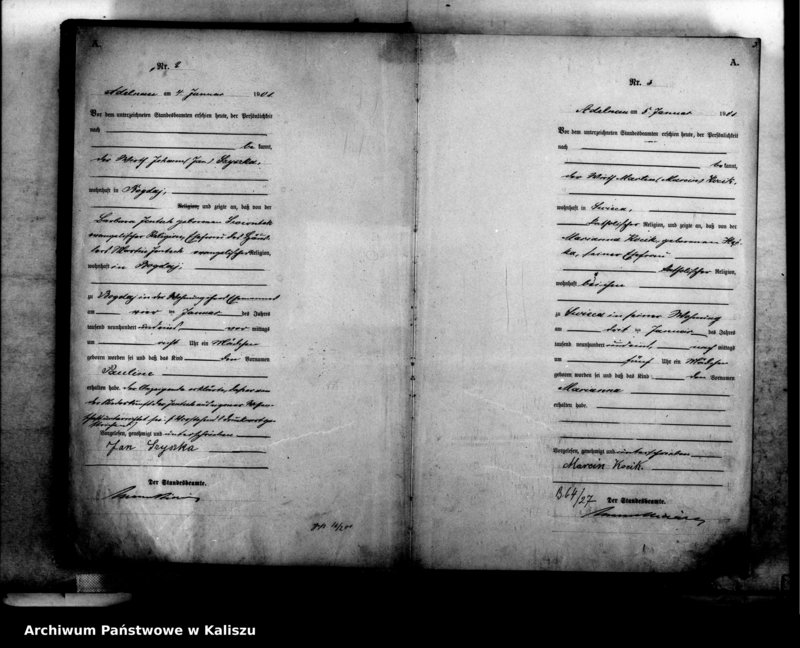 A.
Nr. 2
Adelnau am 4 Januar 1901
Vor dem unterzeichneten Standesbeamten erschien heute, der Persönlichkeit
nach
be kannt,
der Wirth Johann (Jan) Szyszka,
wohnhaft in Bogdaj,
Religion, und zeigte an, daß von der
Barbara geborenen
evangelischer Religion, Ehefrau des
Martin evangelischer Religion,
wohnhaft in Bogdaj,
zu Bogdaj in der Wohnung ihres Ehemannes
am vier ten Januar des Jahres
tausend neunhundert und eins vor mittags
um acht Uhr ein Mädchen
geboren worden sei und daß das Kind den Vornamen
Pauline
erhalten habe. Der Anzeigende erklärte, daß er von
der Niederkunft der aus eigener Wissen-
schaft unterrichtet sei.
Vorgelesen, genehmigt und unterschrieben
Jan Szyszka
Der Standesbeamte.
A.
Nr. 3
Adelnau am 5 Januar 1901
Vor dem unterzeichneten Standesbeamten erschien heute, der Persönlichkeit
nach
be kannt,
der Wirth Martin (Marcin) Kocik,
wohnhaft in Swieca,
katholischer Religion, und zeigte an, daß von der
Marianna Kocik geborenen
seiner Ehefrau
katholischer Religion,
wohnhaft bei ihm
zu Swieca in seiner Wohnung
am drit ten Januar des Jahres
tausend neunhundert und eins nach mittags
um fünf Uhr ein Mädchen
geboren worden sei und daß das Kind den Vornamen
Marianna
erhalten habe.
Vorgelesen, genehmigt und unterschrieben
Marcin Kocik.
B 64/27
Der Standesbeamte.
Archiwum Państwowe w Kaliszu